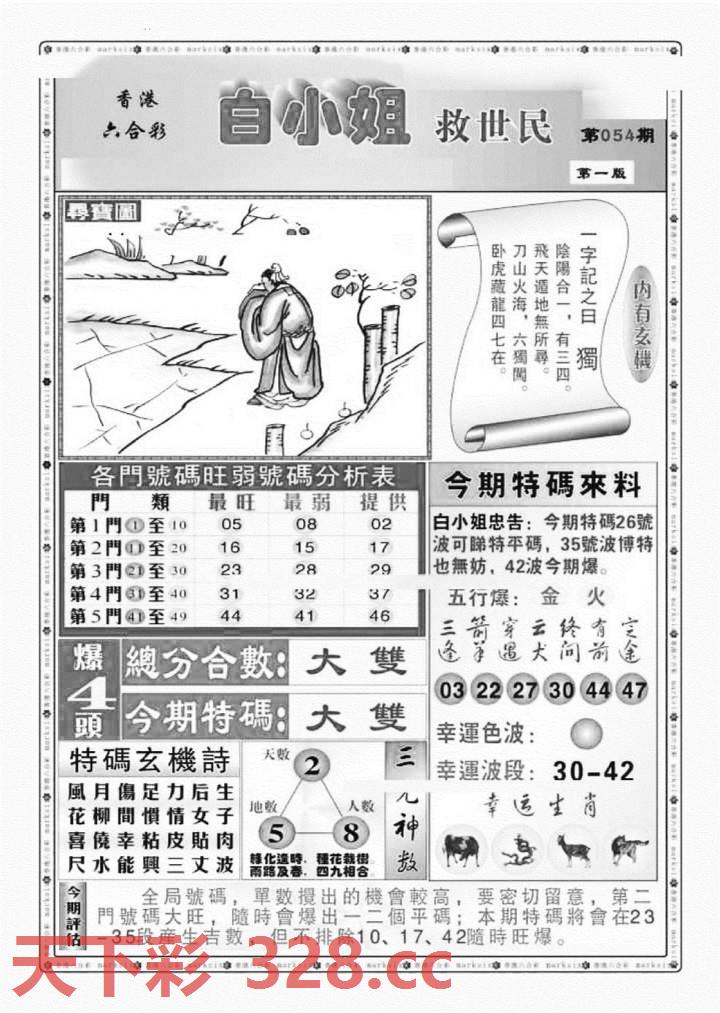 香港
六合彩
白小姐 救世民 第054期
第一版
尋寶圖
一字記之曰 獨
陰陽合一，有三四。
飛天遁地無所尋。
刀山火海，六獨闖。
卧虎藏龍四七在。
内有玄機
各門號碼旺弱號碼分析表
門 類 最旺 最弱 提供
第1門①至10 05 08 02
第2門⑪至20 16 15 17
第3門㉑至30 23 28 29
第4門㉛至40 31 32 37
第5門㊶至49 44 41 46
今期特碼來料
白小姐忠告：今期特碼26號
波可睇特平碼，35號波博特
也無妨，42波今期爆。
五行爆： 金 火
三箭穿云终有定
逢 遇犬问前途
03 22 27 30 44 47
幸運色波：
幸運波段：30-42
幸运生肖
爆4頭
總分合數：大 雙
今期特碼：大 雙
特碼玄機詩
風月傷足力后生
花柳間慣情女子
喜僥幸粘皮貼肉
尺水能興三丈波
天數
2
地數
5
人數
8
三元神數
綠化達時，種花栽樹
雨路及春，四九相合
今期評估
全局號碼，單數攪出的機會較高，要密切留意，第二
門號碼大旺，隨時會爆出一二個平碼；本期特碼將會在23
-35段産生吉數，但不排除10、17、42隨時旺爆。
天下彩 328.cc